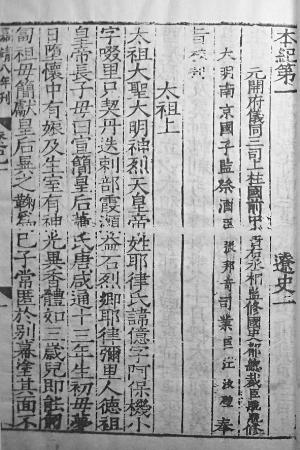 本紀第一 遼史一
元開府儀同三司上柱國前中書右丞相監修國史都總裁臣脫脫修
大明南京國子監祭酒臣張邦奇司業臣江汝璧奉
旨校刊
太祖上
太祖大聖大明神烈天皇帝姓耶律氏諱億字阿保機小
字啜里只契丹迭剌部霞瀬益石烈鄉耶律彌里人德祖
皇帝長子母曰宣簡皇后蕭氏唐咸通十三年生初母夢
日墮懷中有娠及生室有神光異香體如三歲兒即能匍
匐祖母簡獻皇后異之鞠為己子常匿於別幕塗其面不